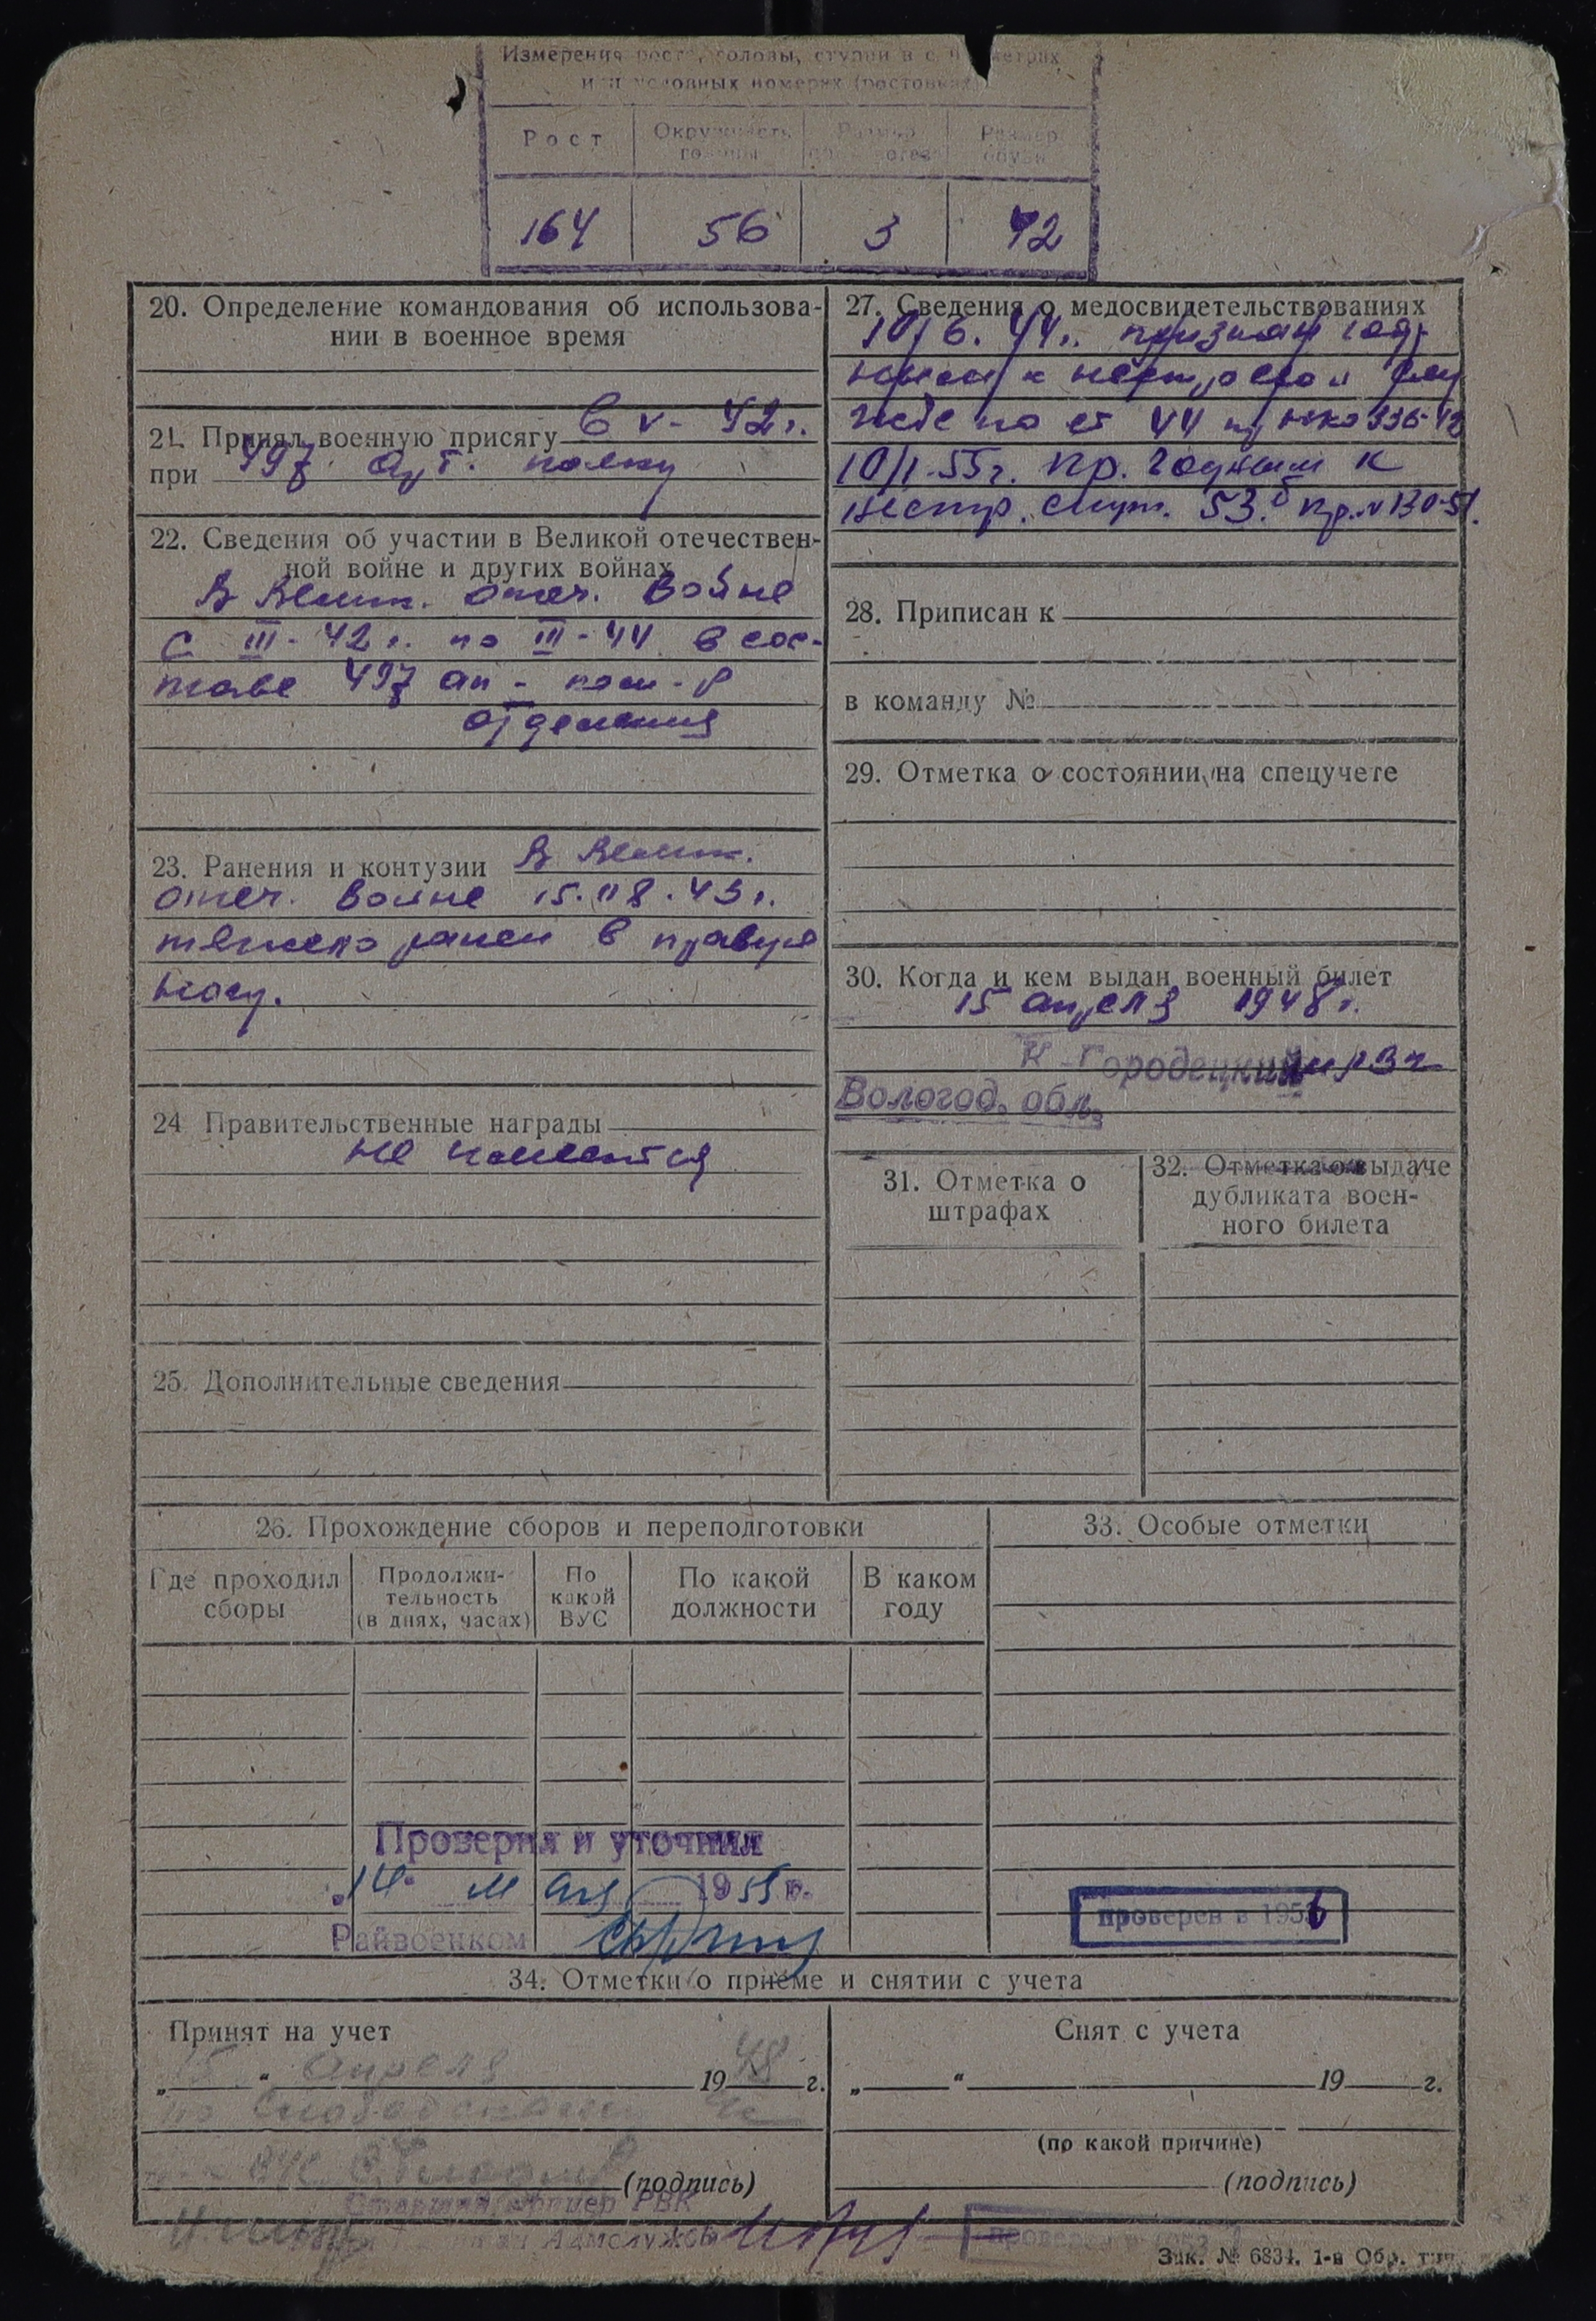 Измерения роста, головы, ступни в с метрах
и условных номерах (ростовках)
Рост
Окружность головы
Размер противогаза
Размер обуви
164 56 3 42
20. Определение командования об использова-
нии в военное время
21. Принял военную присягу в V-42г.
при 497 арт. полку
22. Сведения об участии в Великой отечествен-
ной войне и других войнах
В Велик. отеч. войне
с III-42г. по III-44 в сос-
таве 497 ап - ком-р
отделения
23. Ранения и контузии В Велик.
отеч. войне 15.08.43г.
тяжело ранен в правую
ногу.
24 Правительственные награды
не имеются
25. Дополнительные сведения
27. Сведения о медосвидетельствованиях
10/6.44г. признан год-
ным к нестроевой слу
жбе по ст 44 пр НКО 336-42
10/I-55г. пр. годным к
нестр. служ. 53.б пр. № 130-51.
28. Приписан к
в команду №
29. Отметка о состоянии на спецучете
30. Когда и кем выдан военный билет
15 апреля 1948г.
К-Городецким РВК
Вологод. обл.
31. Отметка о
штрафах
32. Отметка о выдаче
дубликата воен-
ного билета
26. Прохождение сборов и переподготовки
Где проходил
сборы
Продолжи-
тельность
(в днях, часах)
По
какой
ВУС
По какой
должности
В каком
году
33. Особые отметки
Проверил и уточнил
„14" мая 1955 г.
Райвоенком
проверен в 1956
34. Отметки о приеме и снятии с учета
Принят на учет
„15" апреля 1948 г.
по
(подпись)
Старший офицер РВК
Адмслужбы
Снят с учета
„ " 19 г.
(по какой причине)
(подпись)
проверен в 1953
Зак. № 6834. 1-я Обр. тип.